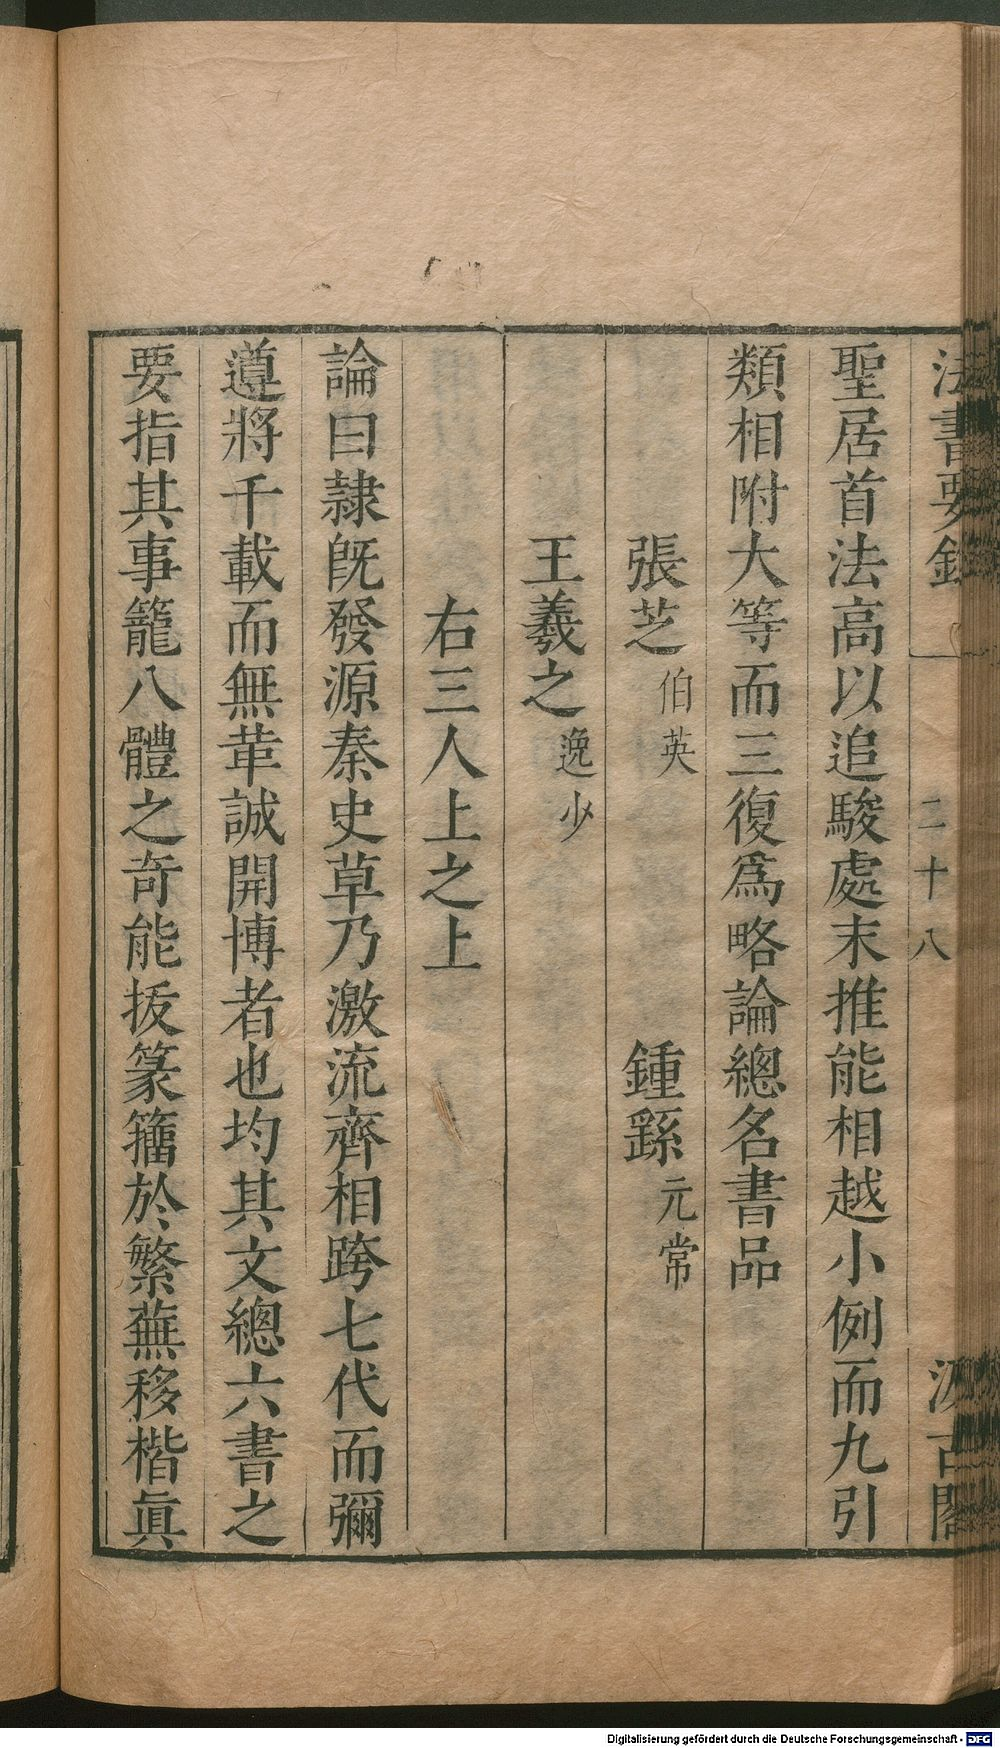 法書要錄 一 二十八 汲古閣
聖居首法高以追駿處末推能相越小例而九引
類相附大等而三復爲略論總名書品
張芝伯英 鍾繇元常
王羲之逸少
右三人上之上
論曰隷旣發源秦史草乃激流齊相跨七代而彌
遵將千載而無革誠開博者也均其文總六書之
要指其事籠八體之奇能拔篆籒於繁蕪移楷眞
Digitalisierung gefördert durch die Deutsche Forschungsgemeinschaft - DFG